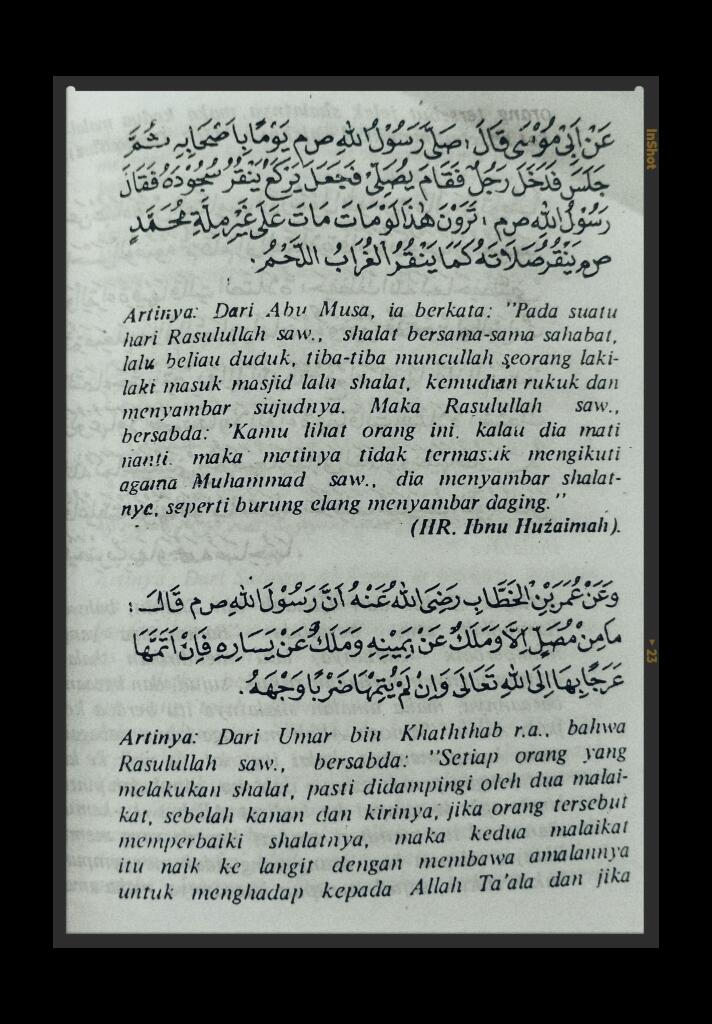 عَنْ اَبِيْ مُوْسَى قَالَ : صَلَّى رَسُوْلُ اللهِ ص م يَوْمًا بِاَصْحَابِهِ ثُمَّ
جَلَسَ فَدَخَلَ رَجُلٌ فَقَامَ يُصَلِّيْ فَجَعَلَ يَرْكَعُ يَنْقُرُ سُجُوْدَهُ فَقَالَ
رَسُوْلُ اللهِ ص م : تَرَوْنَ هٰذَا لَوْمَاتَ مَاتَ عَلَى غَيْرِ مِلَّةِ مُحَمَّدٍ
ص م يَنْقُرُ صَلَاتَهُ كَمَا يَنْقُرُ الْغُرَابُ اللَّحْمُ.
Artinya: Dari Abu Musa, ia berkata: "Pada suatu
hari Rasulullah saw., shalat bersama-sama sahabat,
lalu beliau duduk, tiba-tiba muncullah seorang laki-
laki masuk masjid lalu shalat, kemudian rukuk dan
menyambar sujudnya. Maka Rasulullah saw.,
bersabda: 'Kamu lihat orang ini, kalau dia mati
nanti, maka matinya tidak termasuk mengikuti
agama Muhammad saw., dia menyambar shalat-
nya, seperti burung elang menyambar daging."
(HR. Ibnu Huzaimah).
وَعَنْ عُمَرَ بْنِ الْخَطَّابِ رَضِيَ اللهُ عَنْهُ اَنَّ رَسُوْلَ اللهِ ص م قَالَ :
مَا مِنْ مُصَلٍّ اِلَّا وَمَلَكٌ عَنْ يَمِيْنِهِ وَمَلَكٌ عَنْ يَسَارِهِ فَاِنْ اَتَمَّهَا
عَرَجَا بِهَا اِلَى اللهِ تَعَالَى وَاِنْ لَمْ يُتِمَّهَا ضَرَبَا وَجْهَهُ.
Artinya: Dari Umar bin Khaththab r.a., bahwa
Rasulullah saw., bersabda: "Setiap orang yang
melakukan shalat, pasti didampingi oleh dua malai-
kat, sebelah kanan dan kirinya, jika orang tersebut
memperbaiki shalatnya, maka kedua malaikat
itu naik ke langit dengan membawa amalannya
untuk menghadap kepada Allah Ta'ala dan jika
InShot
23